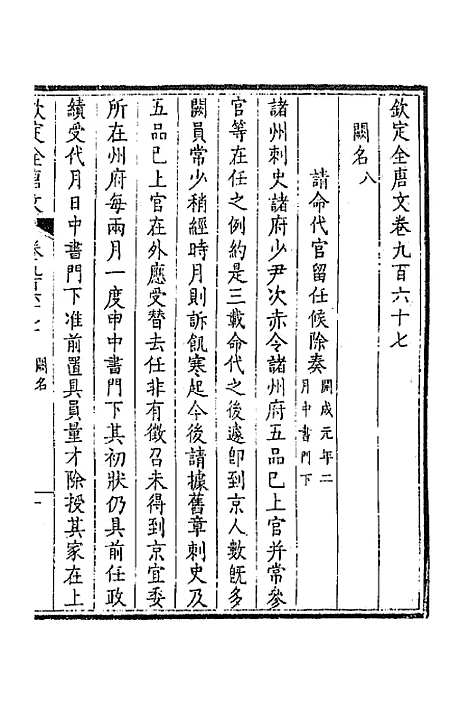 欽定全唐文卷九百六十七
闕名八
請命代官留任候除奏開成元年二月中書門下
諸州刺史諸府少尹次赤令諸州府五品已上官并常參
官等在任之例約是三載命代之後遽卽到京人數旣多
闕員常少稍經時月則訴飢寒起今後請據舊章刺史及
五品已上官在外應受替去任非有徵召未得到京宜委
所在州府每兩月一度申中書門下其初狀仍具前任政
績受代月日中書門下准前置具員量才除授其家在上
欽定全唐文 卷九百六十七 闕名 一